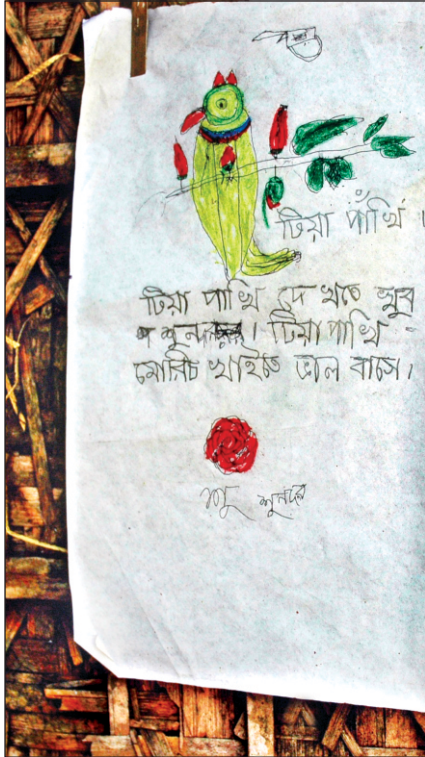 টিয়া পাঁখি ।
টিয়া পাখি দেখতে খুব
শুনদর। টিয়া পাখি
মোরিচ খাইতে ভাল বাসে।
শুনদর